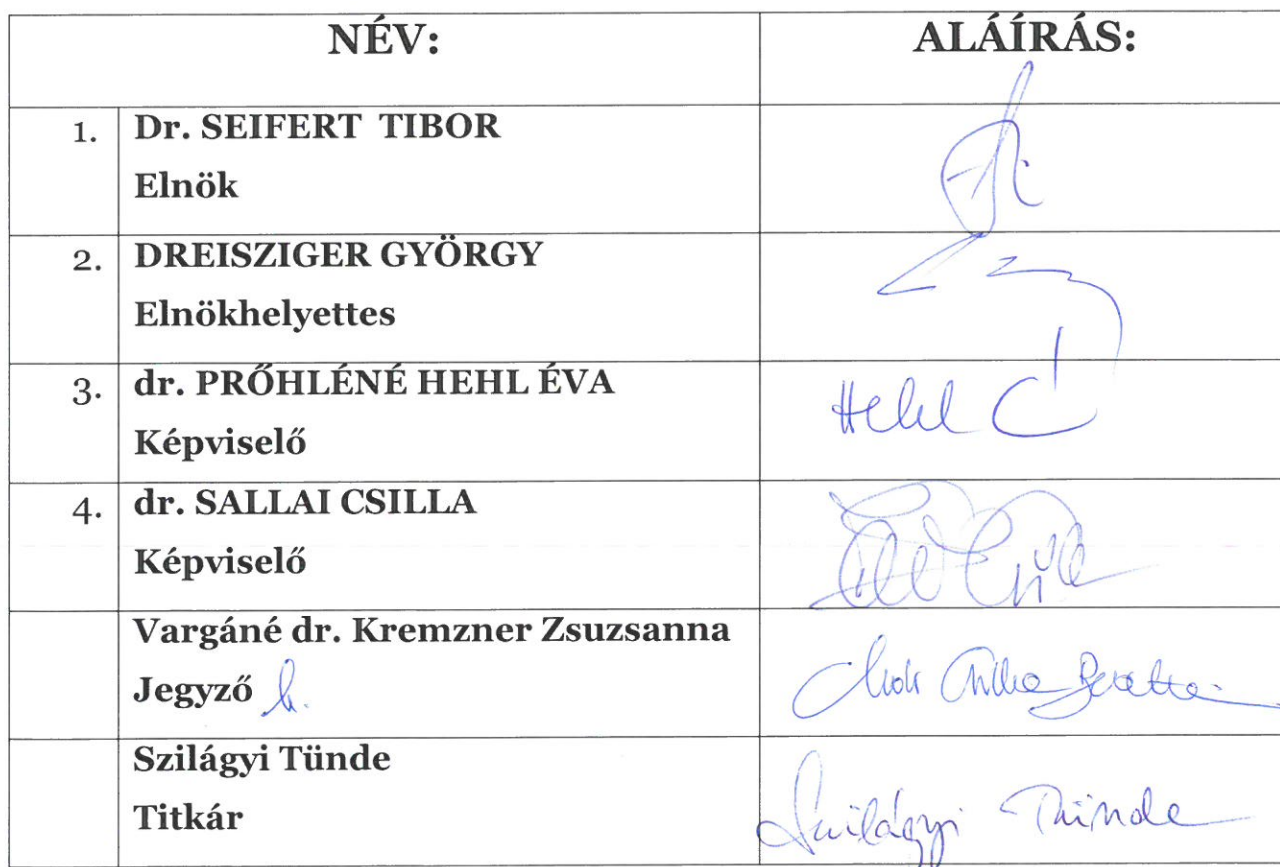 NÉV: ALÁÍRÁS:
1. Dr. SEIFERT TIBOR
Elnök
2. DREISZIGER GYÖRGY
Elnökhelyettes
3. dr. PRŐHLÉNÉ HEHL ÉVA
Képviselő
Hehl
4. dr. SALLAI CSILLA
Képviselő
Vargáné dr. Kremzner Zsuzsanna
Jegyző h.
Szilágyi Tünde
Titkár
Szilágyi Tünde